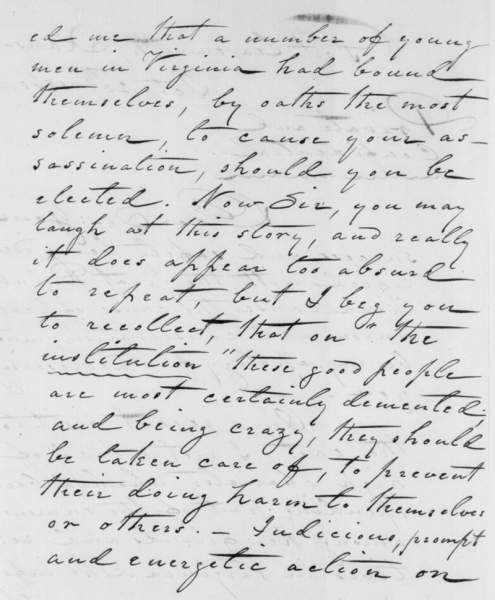 ed me that a number of young
men in Virginia had bound
themselves, by oaths the most
solemn, to cause your as-
sassination, should you be
elected. Now Sir, you may
laugh at this story, and really
it does appear too absurd
to repeat, but I beg you
to recollect, that on "the
institution" these good people
are most certainly demented,
and being crazy, they should
be taken care of, to prevent
their doing harm to themselves
or others. — Judicious, prompt
and energetic action on